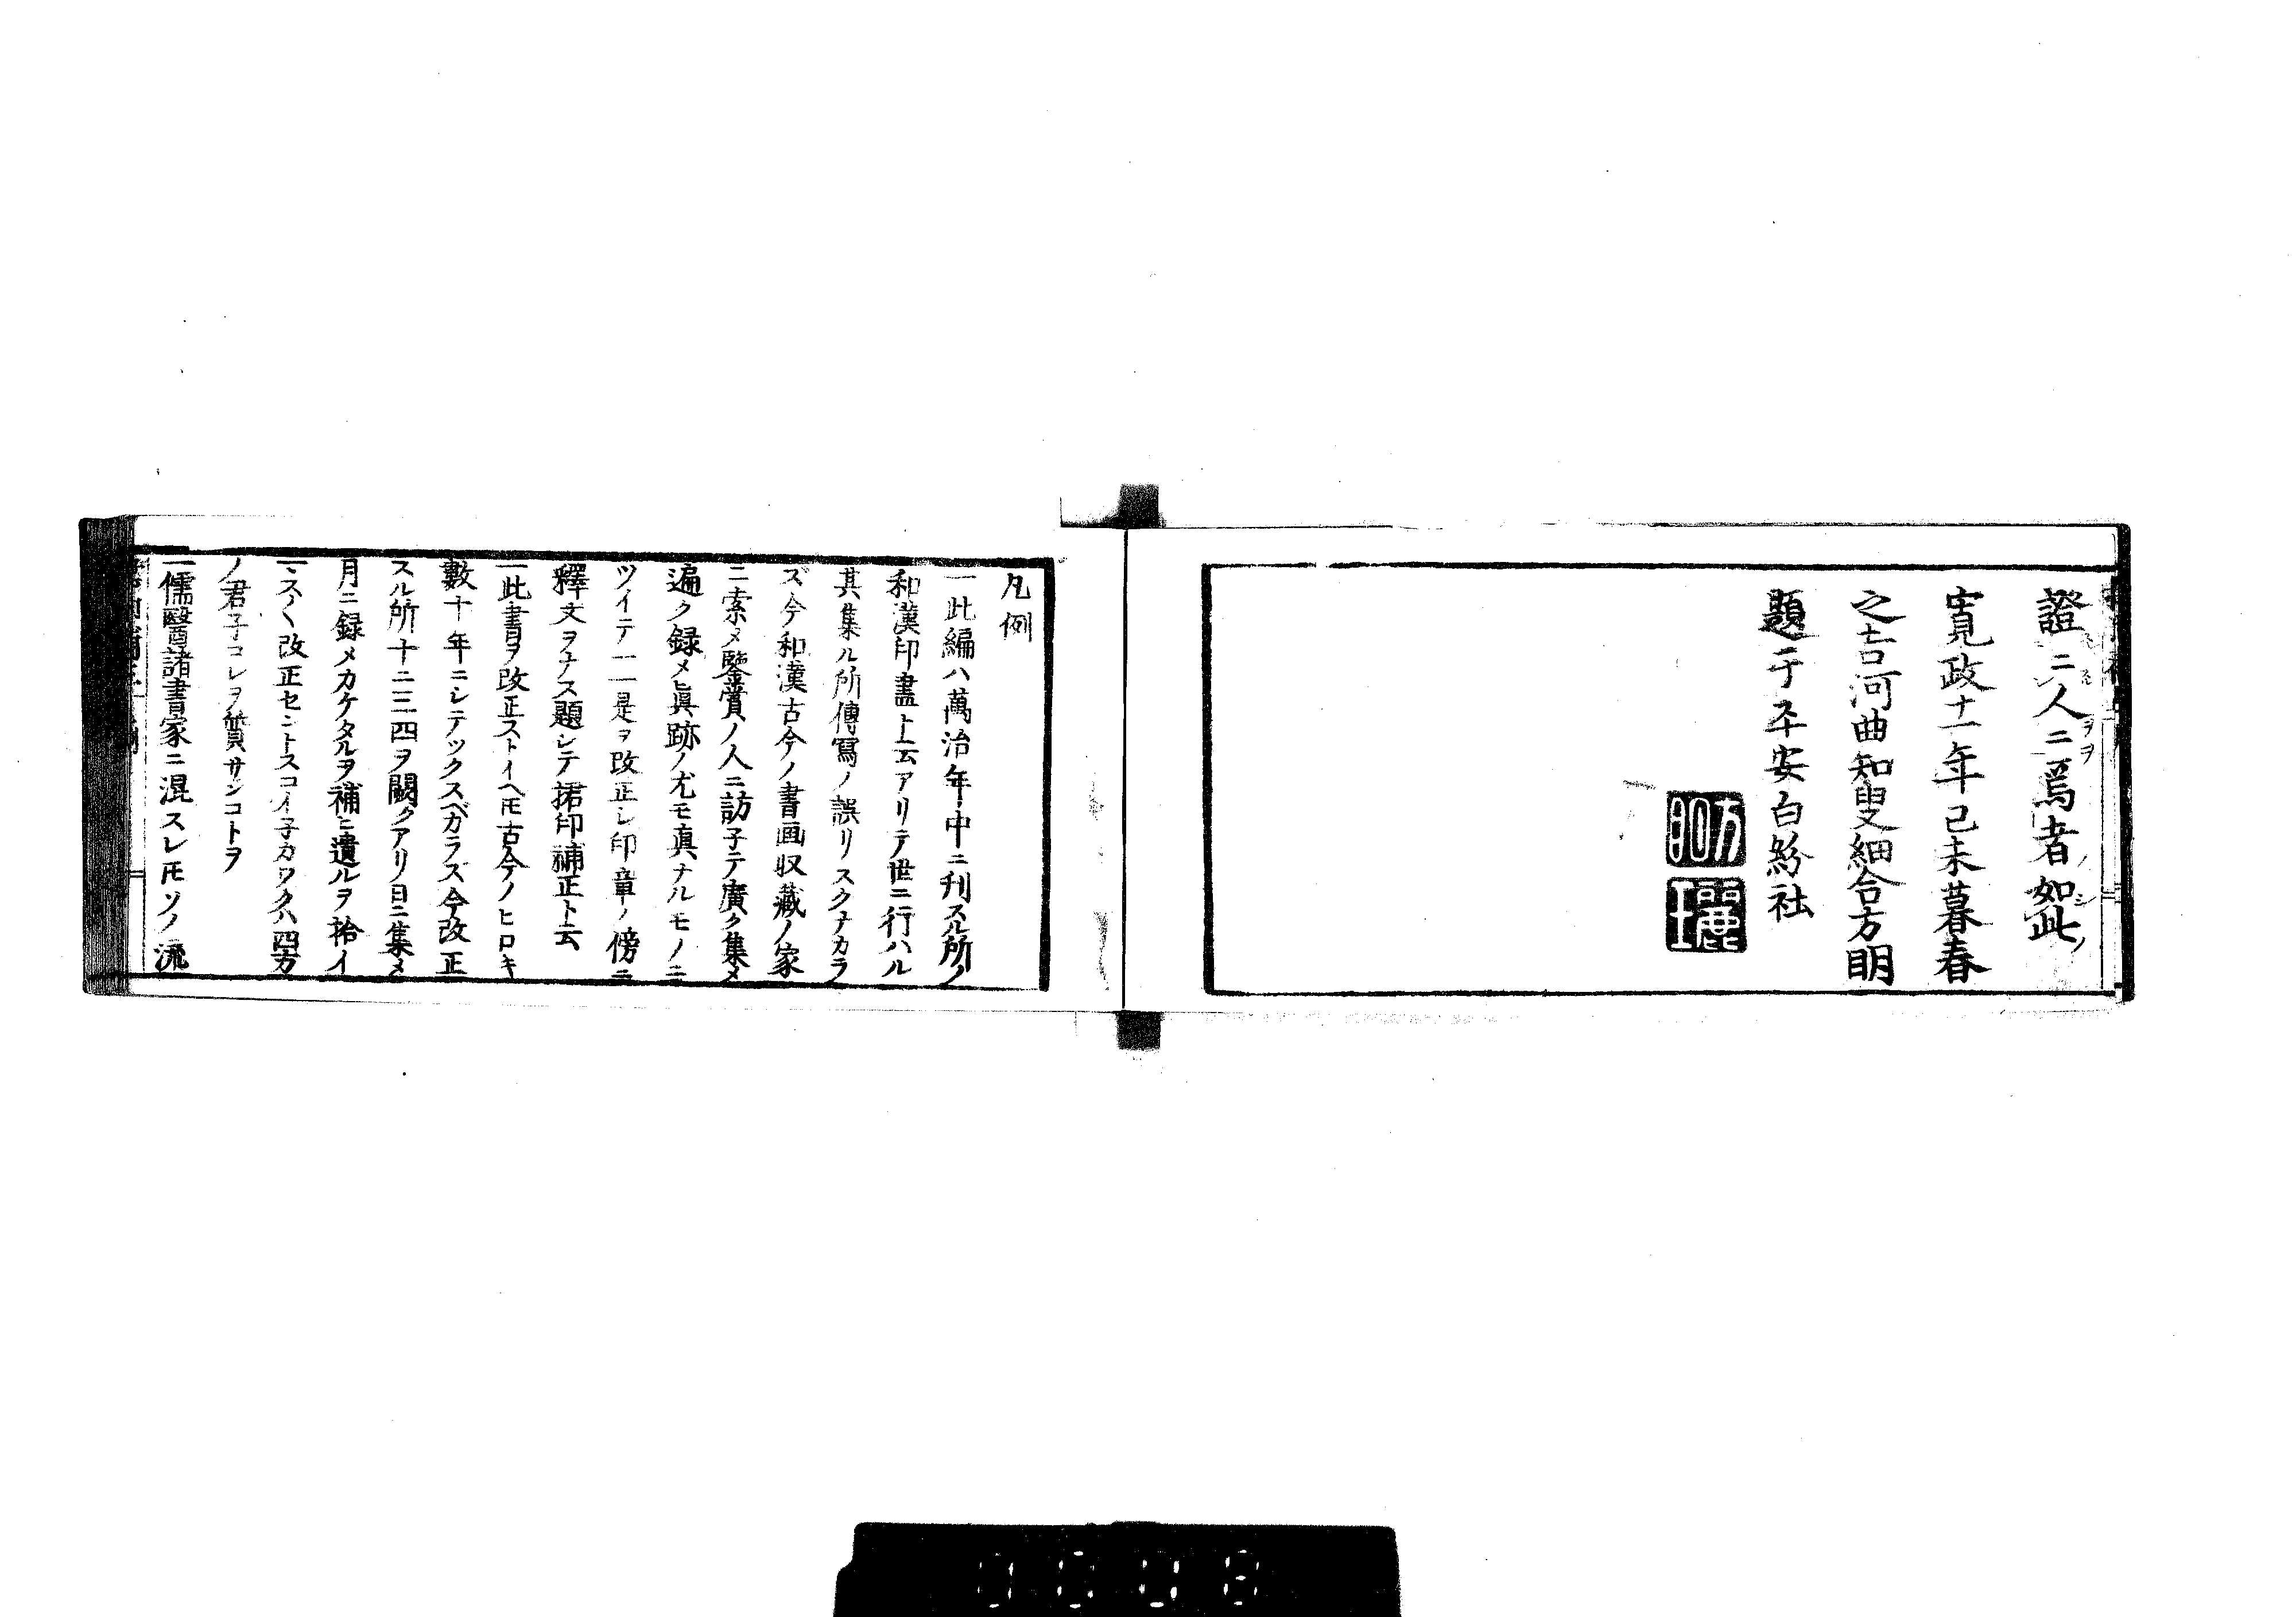 證二人二焉者如此
寛政十一年己未暮春
之吉河曲知叟細合方明
題于平安白鮗社
方明
麗王
凡例
一此編ハ萬治年中ニ刊スル所ノ
和漢印盡ト云アリテ世ニ行ハル
其集ル所傳寫ノ誤リスクナカラ
ズ今和漢古今ノ書画収藏ノ家
ニ索メ鑒賞ノ人ニ訪子テ廣ク集メ
遍ク録メ眞跡ノ尤モ真ナルモノニ
ツイテ一一是ヲ改正シ印章ノ傍ニ
釋文ヲナス題シテ捃印補正ト云
一此書ヲ改正ストイヘ𪜈古今ノヒロキ
數十年ニシテツクスベカラズ今改正
スル所十ニ三四ヲ闕クアリ日ニ集メ
月ニ録メカケタルヲ補ヒ遺ルヲ拾イ
ミスく改正セントスコイ子カワクハ四方
ノ君子コレヲ質サンコトヲ
一儒醫諸書家ニ混スレ𪜈ソノ流
0008